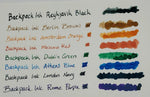 Backpack Ink Reykjavik Black
Backpack Ink Berlin Brown
Backpack Ink Amsterdam Orange
Backpack Ink Moscow Red
Backpack Ink Dublin Green
Backpack Ink Athens Blue
Backpack Ink London Navy
Backpack Ink Rome Purple